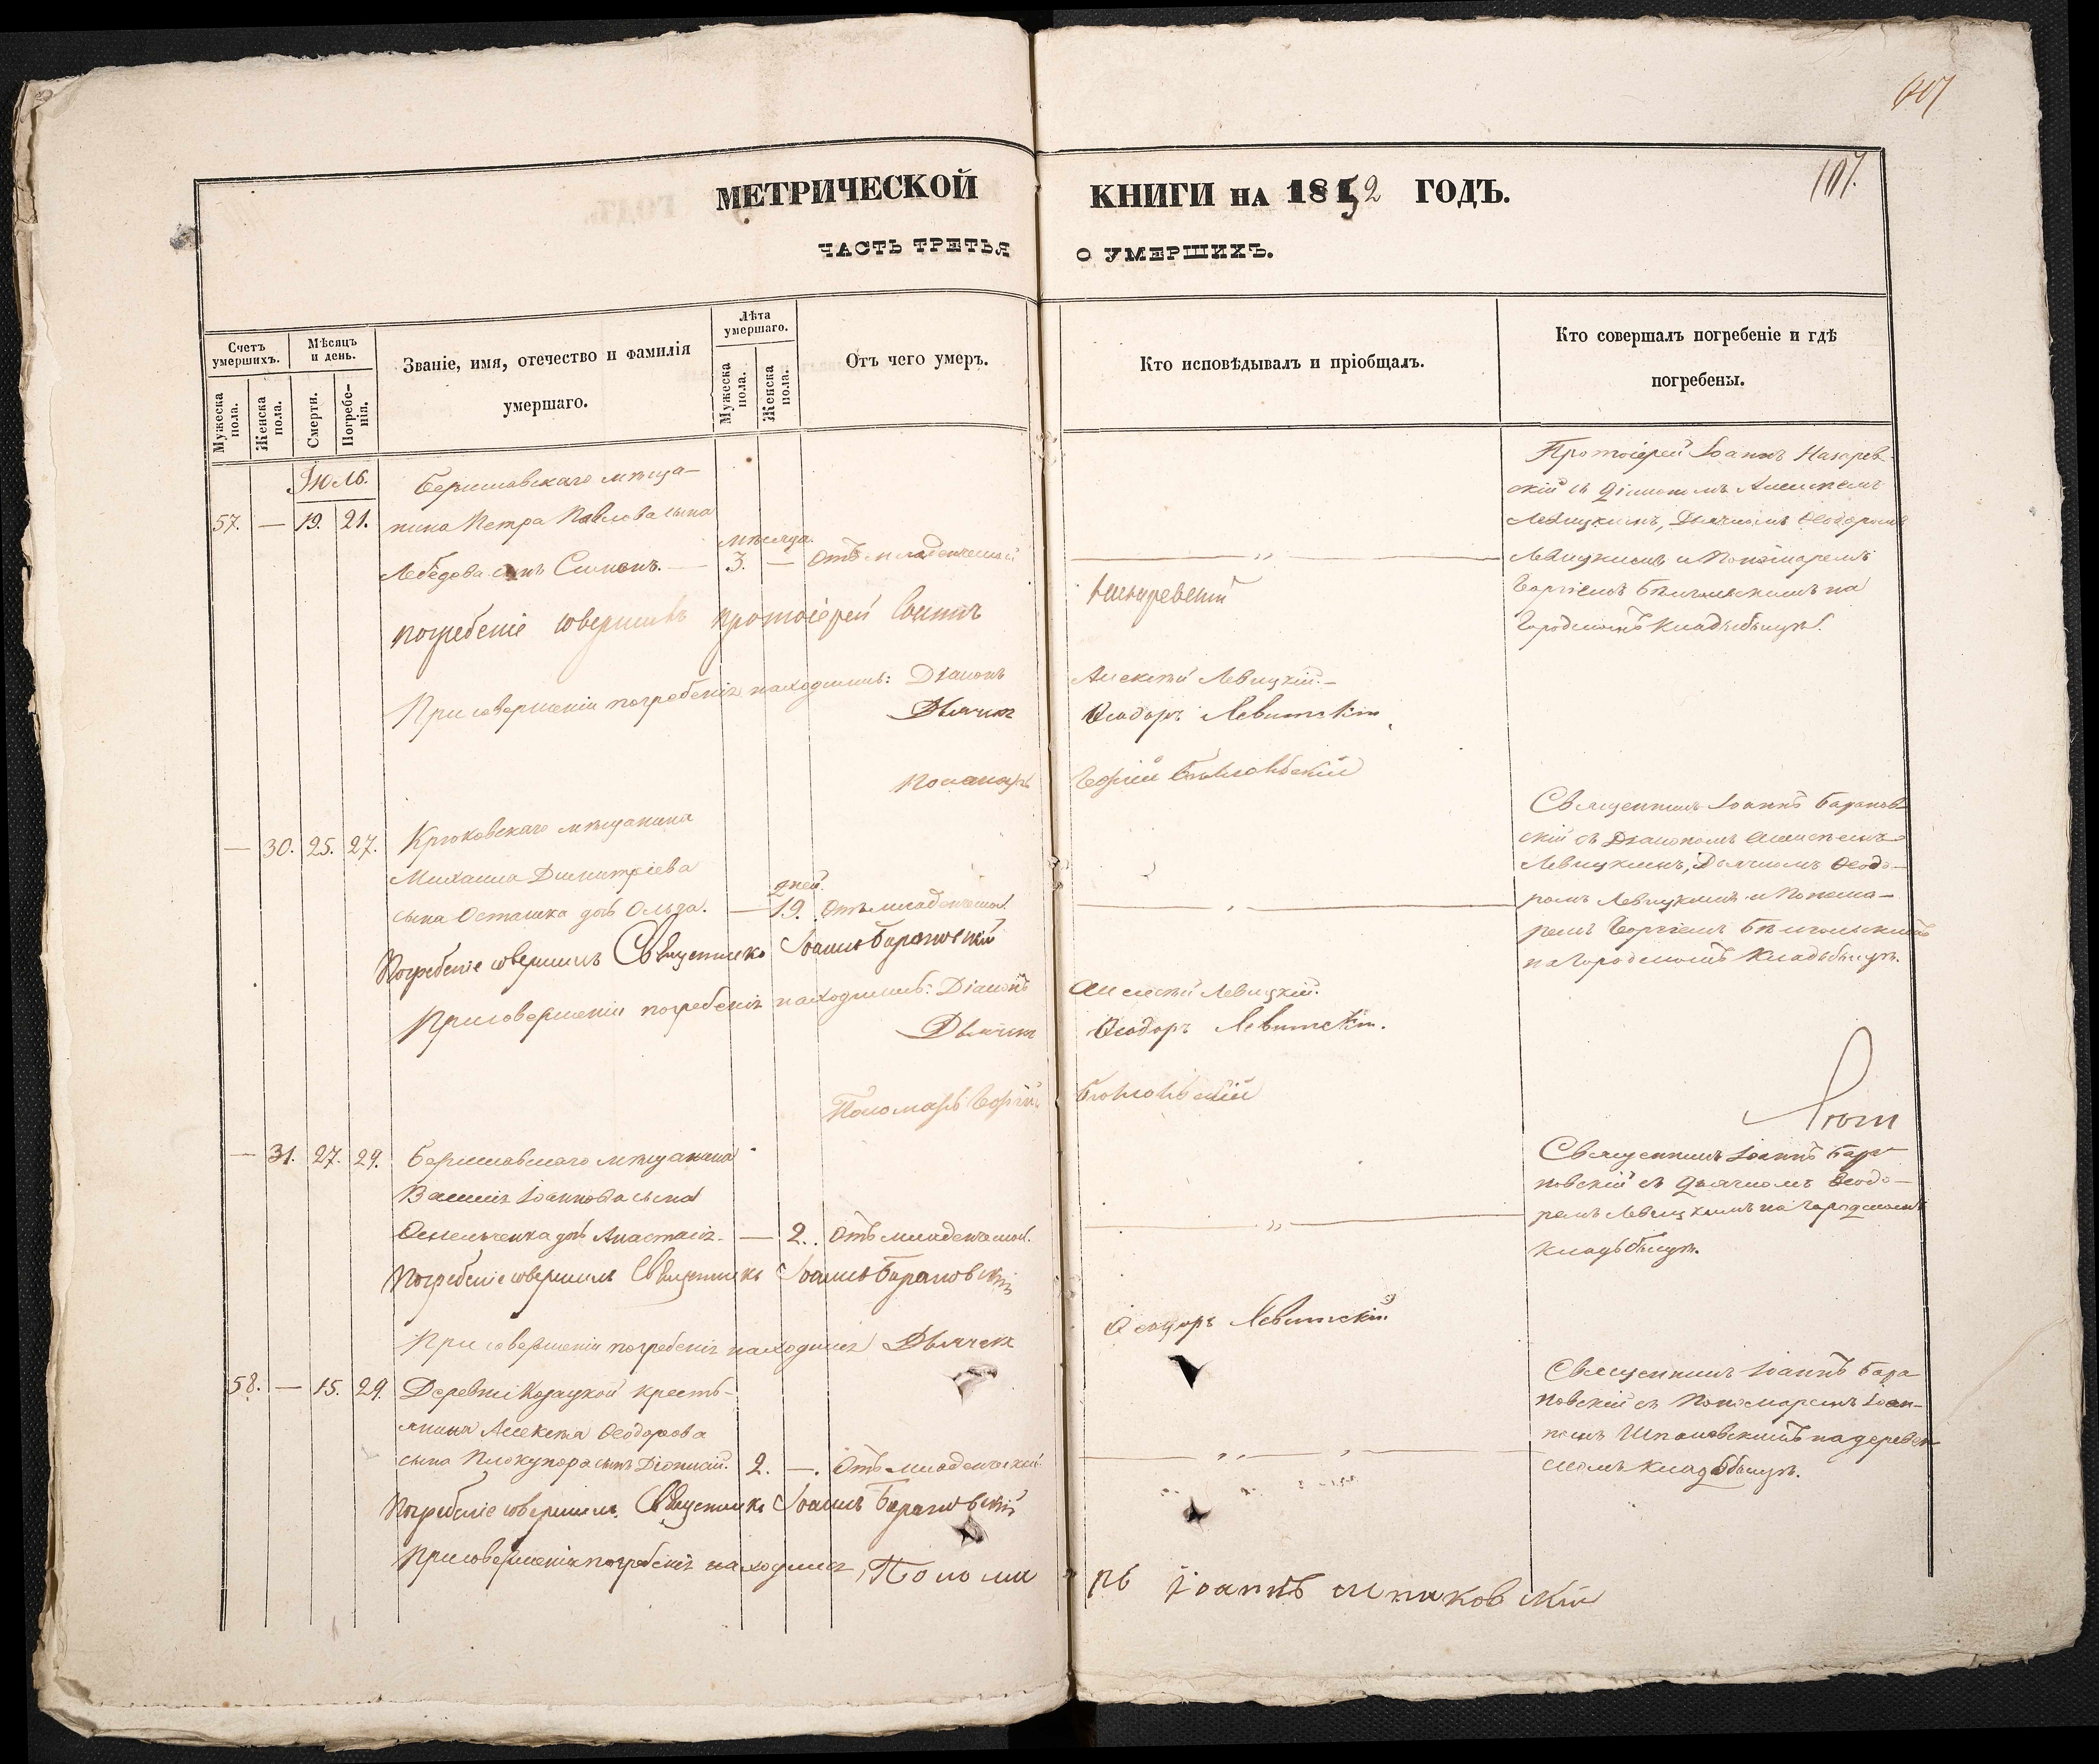 107.
МЕТРИЧЕСКОЙ КНИГИ НА 1852 ГОДЪ.
ЧАСТЬ ТРЕТЬЯ О УМЕРШИХЪ.
Счетъ умершихъ.
Мужеска пола.
Женска пола.
Мѣсяцъ и день.
Смерти.
Погребенія.
Званіе, имя, отечество и фамилія
умершаго.
Лѣта умершаго.
Мужеска пола.
Женска пола.
Отъ чего умеръ.
Кто исповѣдывалъ и пріобщалъ.
Кто совершалъ погребеніе и гдѣ
погребены.
Іюль.
57. — 19. 21.
Бериславскаго мѣща-
нина Петра Павлова сына
Лебедова сынъ Симонъ. — мѣсяца 3. — Отъ младенческой
Протоіерей Іоаннъ
скій съ Діакономъ Алексѣемъ
Левицкимъ, Дьячкомъ Ѳеодоромъ
Левицкимъ и Пономаремъ
Георгіемъ на
Городскомъ Кладьбищѣ.
погребеніе совершилъ протоіерей Іоаннъ
При совершеніи погребенія находились: Діаконъ Алексѣй Левицкій.
Дьячекъ Ѳеодоръ Левитскій
Пономарь Георгій
— 30. 25. 27.
Крюковскаго мѣщанина
Михаила Димитріева
сына Осташка дочь Ольга. — дней 19. Отъ младенческой
Священникъ Іоаннъ Баранов-
скій съ Діакономъ Алексѣемъ
Левицкимъ, Дьячкомъ Ѳеодо-
ромъ Левицкимъ и Понома-
ремъ Георгіемъ
на Городскомъ Кладьбищѣ.
Погребеніе совершилъ Священникъ Іоаннъ Барановскій
При совершеніи погребенія находились: Діаконъ Алексѣй Левицкій.
Дьячекъ Ѳеодоръ Левитскій.
Пономарь Георгій
— 31. 27. 29.
Бериславскаго мѣщанина
Василія Іоаннова сына
Омельченка дочь Анастасія. — 2. Отъ младенческой.
Священникъ Іоаннъ Бара-
новскій съ Дьячкомъ Ѳеодо-
ромъ Левицкимъ на Городскомъ
Кладьбищѣ.
Погребеніе совершилъ Священникъ Іоаннъ Барановскій
При совершеніи погребенія находился Дьячекъ Ѳеодоръ Левитскій
58. — 15. 29.
Деревни Козацкой кресть-
янина Алексѣя Ѳеодорова
сына сынъ Діонисій. 2. — Отъ младенческой
Священникъ Іоаннъ Бара-
новскій съ Пономаремъ Іоан-
номъ Шпаковскимъ на деревен-
скомъ Кладьбищѣ.
Погребеніе совершилъ Священникъ Іоаннъ Барановскій
При совершеніи погребенія находился Пономарь Іоаннъ Шпаковскій